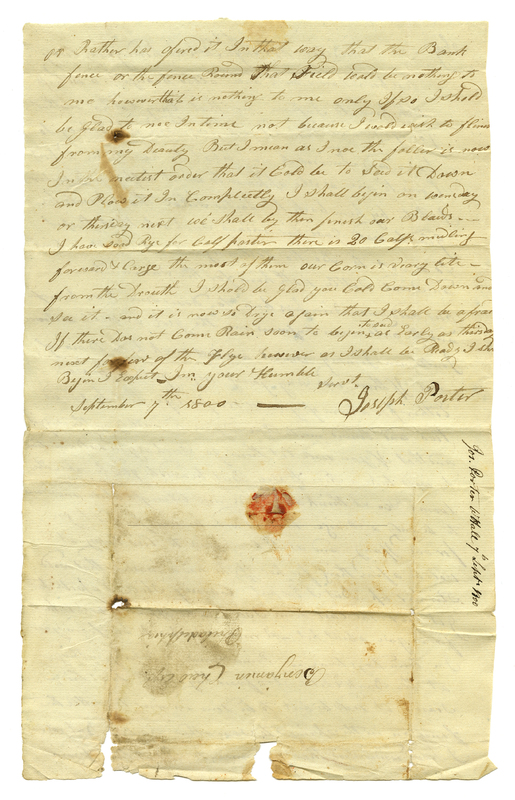 or Rather has ofered it In that way that the Bank
fence or the fence Round that Field would be nothing to
me however that is nothing to me only If so I shold
be glad to noe In time not because I wold wish to flinch
from my Deauty But I mean as I noe the foller is now
In the neetest order that it Cold be to Sow it Down
and Plow it In Compleetly I shall begin on
or thersday next we shall by then finish our Blaids —
I have Sowd Rye for Calf paster there is 20 Calfs midling
forward & Large the most of them our Corn is veary lite —
from the Drouth I should be glad you Cold Come Down and
see it — and it is now so Drye again that I shall be afraid
If there Dos not Come Rain Soon to begin to Sow at Early as thersday
next of the Flye however as I shall be Ready I shall
Begin I expect I'm your Humble
Servt
September 7th 1800 — Joseph Porter
Jos. Porter W'Hall 7th Septr 1800
Benjamin Chew Esqr
Philadelphia